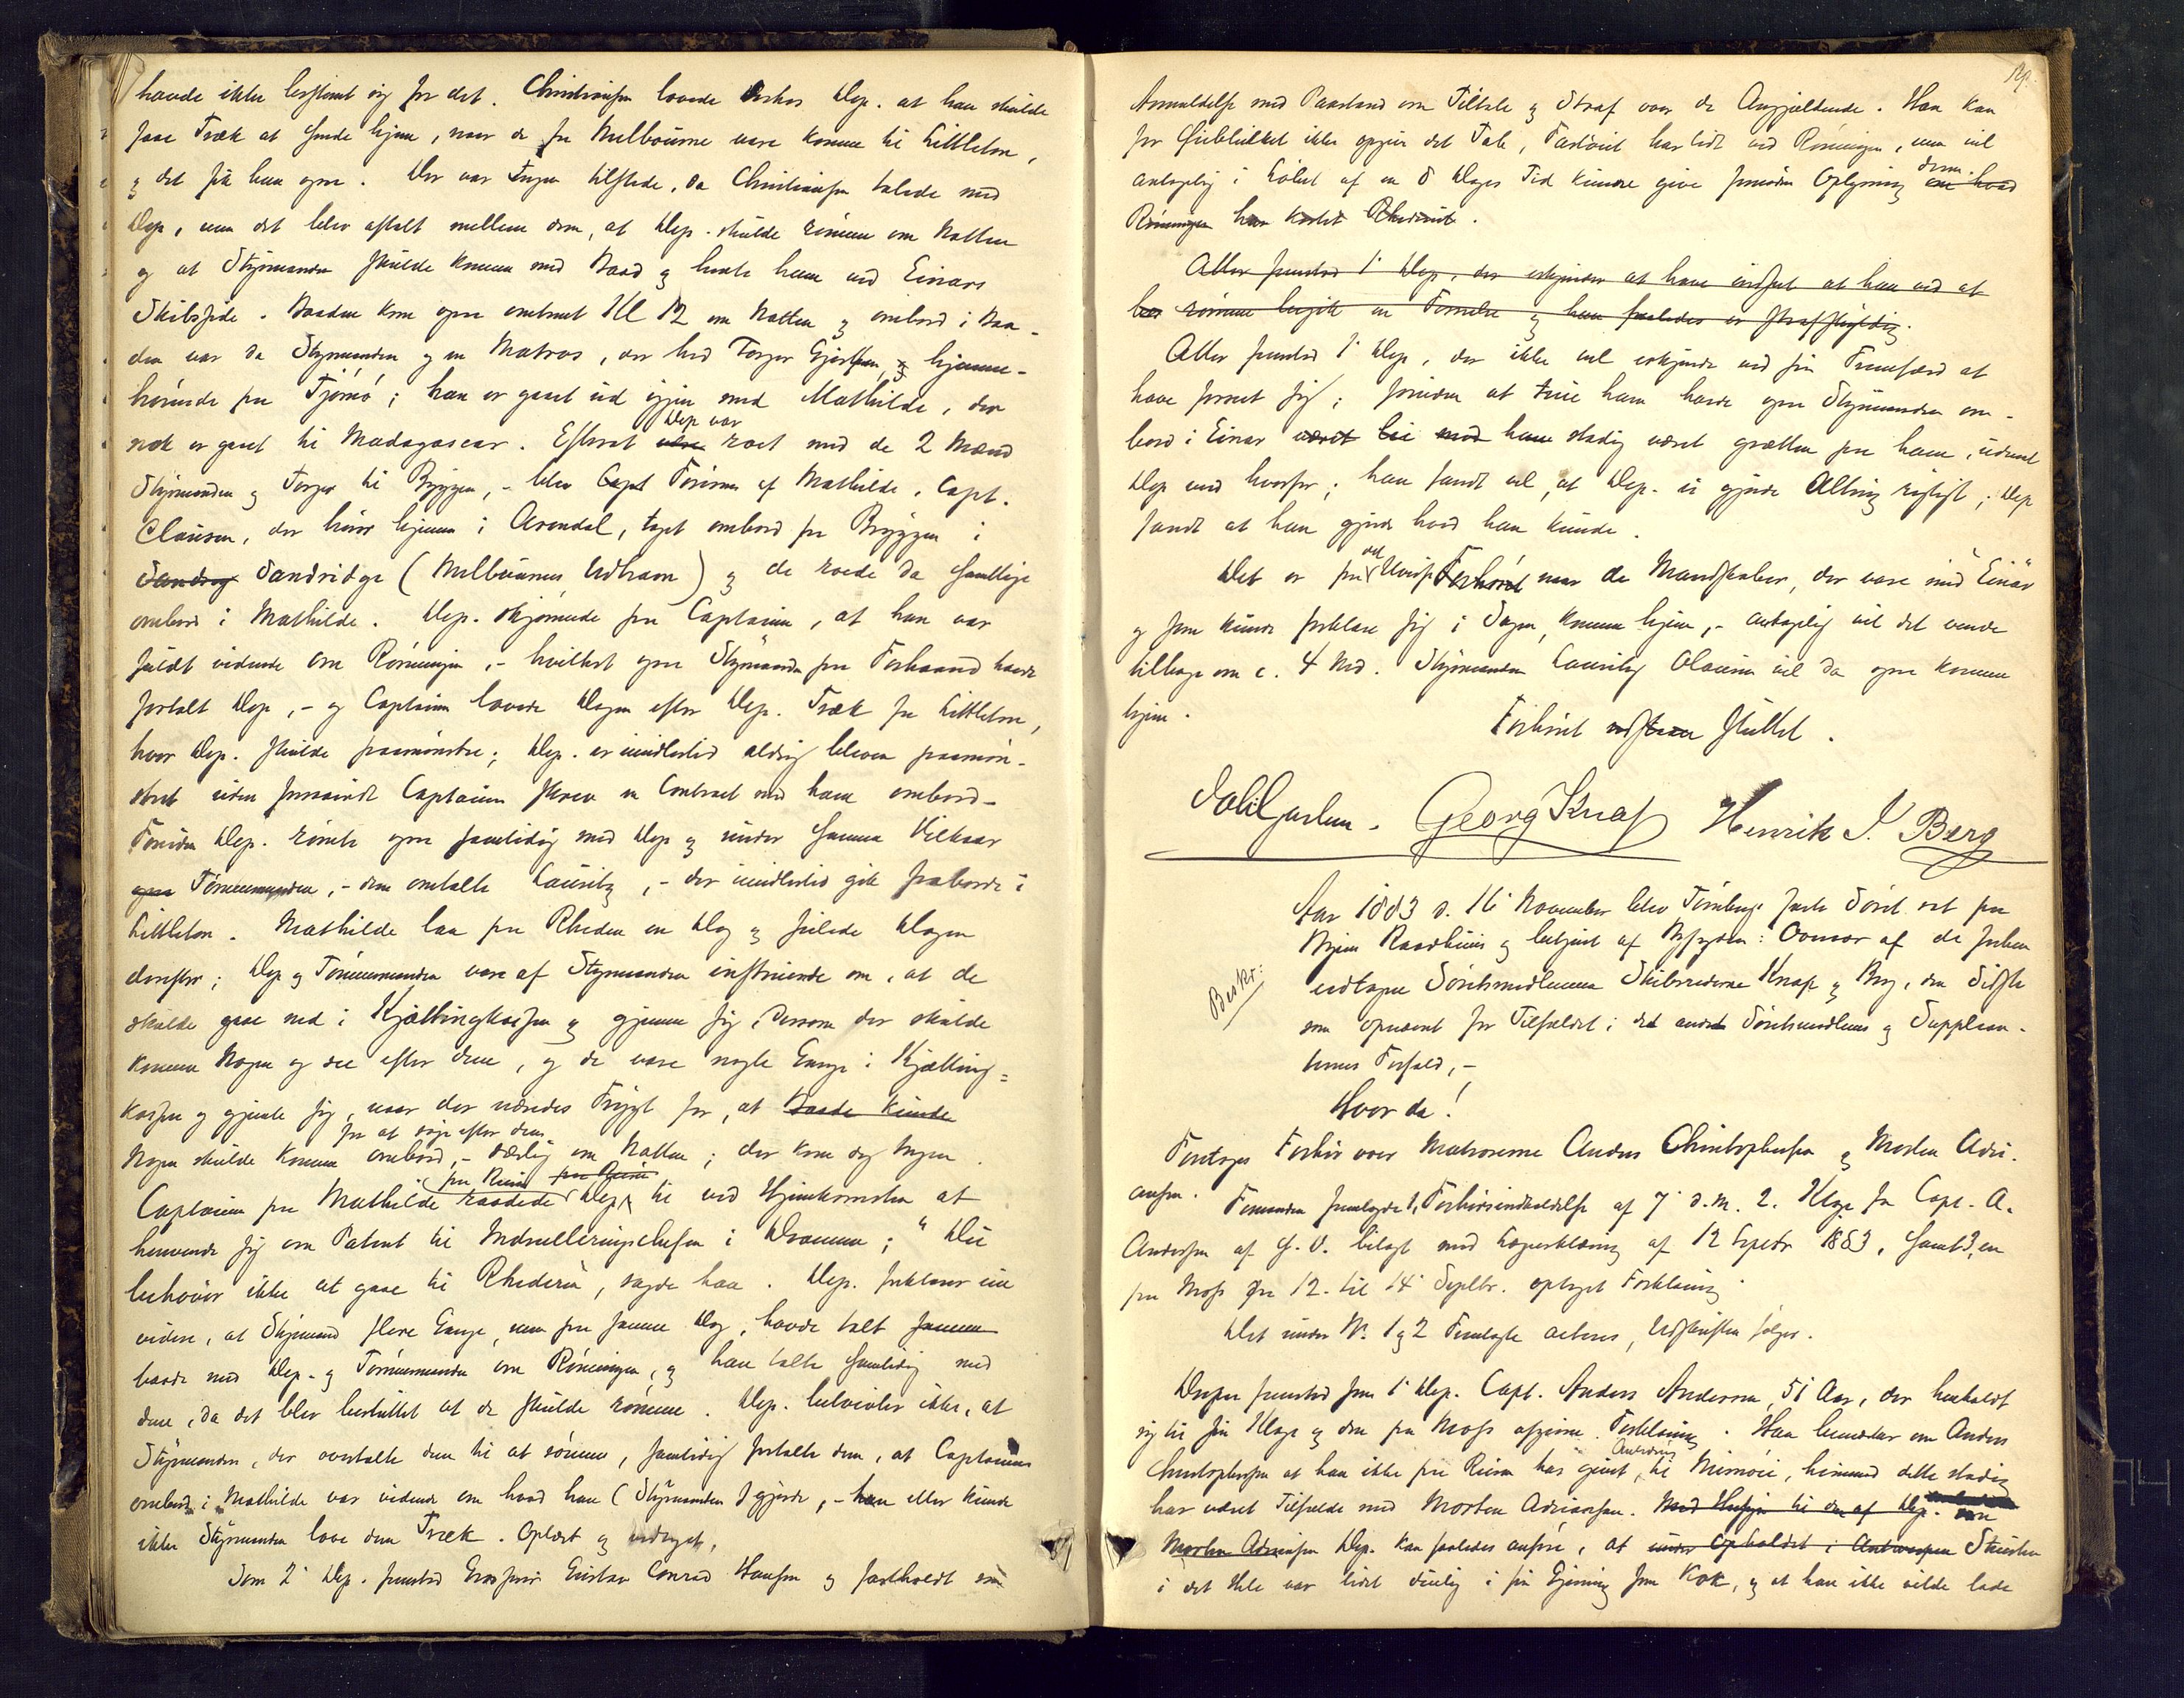 havde ikke bestemt sig for det. Christiansen lovede ønskes Dep. at han skulde
faae Træk at sende hjem, naar de fra Melbourne vare komne til Littleton,
og det fik han ogsaa. Der var Ingen tilstede, da Christiansen talede med
Dep, men det blev aftalt mellem dem, at Dep. skulde rømme om Natten
og at Styrmanden skulde komme med Baad og hente ham ved Einars
Skibsside. Baaden kom ogsaa omtrent Kl 12 om Natten og ombord i Baa-
den var da Styrmanden og en Matros, der hed Torger Gjertsen, og hjemme-
hørende paa Tjømø; han er gaaet ud igjen med Mathilde, der
nok er gaaet til Madagascar. Efterat Dep var roet med de 2 Mænd
Styrmanden og Torger til Bryggen, - blev Capt Føreren af Mathilde, Capt.
Clausen, der hører hjemme i Arendal, taget ombord fra Bryggen i
Sandrig Sandridge (Melbournes Udhavn) og de roede da samtlige
ombord i Mathilde. Dep. skjønnede paa Captainen, at han var
fuldt vidende om Rømningen, - hvilket ogsaa Styrmanden paa Forhaand havde
fortalt Dep, - og Captainen lovede Dagen efter Dep. Træk fra Littleton,
hvor Dep. skulde paamønstre; Dep. er imidlertid aldrig bleven paamøn-
stret uden forsaavidt Captainen skrev en Contract med ham ombord -
Foruden Dep. rømte ogsaa samtidig med Dep og under samme Vilkaar
ogsaa Tømmermanden, - den omtalte Lauritz, - der imidlertid gik fraborde i
Littleton. Mathilde laa paa Rheden en Dag og seilede Dagen
derefter; Dep og Tømmermanden vare af Styrmanden instruerede om, at de
skulde gaae ned i Kjættingkassen og gjemme sig, dersom der skulde
komme Nogen og see efter dem, og de vare nogle Gange i Kjætting-
kassen og gjemte sig, naar der næredes Frygt for, at Baade kunde
Nogen skulde komme ombord for at søge efter dem, - særlig om Natten; der kom dog Ingen.
Captainen paa Mathilde raadede paa Reisen Dep til ved Hjemkomsten at
henvende sig om Patent til Indrulleringschefen i Drammen; "Du
behøver ikke at gaae til Rhederiet, sagde han. Dep. forklarer end
videre, at Styrmand flere Gange, men paa samme Dag, havde talt sammen
baade med Dep. og Tømmermanden om Rømningen, og han talte samtidig med
dem, da det blev besluttet at de skulde rømme. Dep. betvivler ikke, at
Styrmanden, der overtalte dem til at rømme, samtidig fortalte dem, at Captainen
ombord i Mathilde var vidende om hvad han (Styrmanden) gjorde, - han ellers kunde
ikke Styrmanden love dem Træk. Oplæst og vedtaget,
Som 2' Dep. fremstod Grosserer Gustav Conrad Hansen og fastholdt sin
Anmeldelse med Paastand om Tiltale og Straf over de Angjældende. Han kan
for Øieblikket ikke opgive det Tab, Partsrederiet har lidt ved Rømningen, men vil
antagelig i Løbet af en 8 Dages Tid kunne give fornøden Oplysning derom. om hvad
Rømningen har kostet Rhederiet.
Atter fremstod 1' Dep, der erkjender at have indseet at han ved at
har rømme begik en Forseelse og han saaledes er strafskyldig.
Atter fremstod 1' Dep, der ikke vil erkjende ved sin Fremfærd at
have forseet sig; foruden at true ham havde ogsaa Styrmanden om-
bord i Einar været lei mod ham stadig været grætten paa ham, uden at
Dep veed hvorfor; han fandt vel, at Dep. ei gjorde Alting rigtigt; Dep
fandt at han gjorde hvad han kunde.
Det er paa det Uvisse Forhøret naar de Mandskaber, der vare med "Einar"
og som kunde forklare sig i Sagen, komme hjem, - antagelig vil det vende
tilbage om c. 4 Md. Styrmanden Lauritz Clausen vil da ogsaa komme
hjem.
Forhøret udsttes sluttet.
Georg Knap Henrik J. Berg
Aar 1883 d. 16' November blev Tønsbergs faste Søret sat paa
Byens Raadhuus og betjent af Byfogden: Oomar af de forhen
edtagne Søretsmedlemmer Skibsrederne Knap og Berg, den Sidste
som opnævnt for Tilfældet i det andet Søretsmedlems og Supplean-
ternes Forfald, -
Beskr:
Hvor da!
Foretoges Forhør over Matroserne Anders Christophersen og Morten Adri-
ansen. Formanden fremlagde 1, Forhørsindkaldelse af 7' d.M. 2. Klage fra Capt. A.
Andersen af S. V. bilagt med Lægeerklæring af 12 Septbr 1883, samt 3, en
paa Moss fra 12. til 14' Septbr. optaget Forklaring.
Det under No. 1 og 2 Fremlagte acteres, Udskriften følger.
Derpaa fremstod som 1' Dep. Capt. Anders Andersen, 51 Aar, der henholdt
sig til sin Klage og den paa Moss afgivne Forklaring. Han bemærker om Anders
Christophersen at han ikke paa Reisen har givet Anledning til Misnøie, hvorimod dette stadig
har været Tilfælde med Morten Adriansen. Med Hensyn til den af Dep. om
Morten Adriansen Dep. kan saaledes anføre, at under Opholdet i Antwerpen Stuerten
i det Hele var lidet duelig i sin Gjerning som Kok, og at han ikke vilde lade